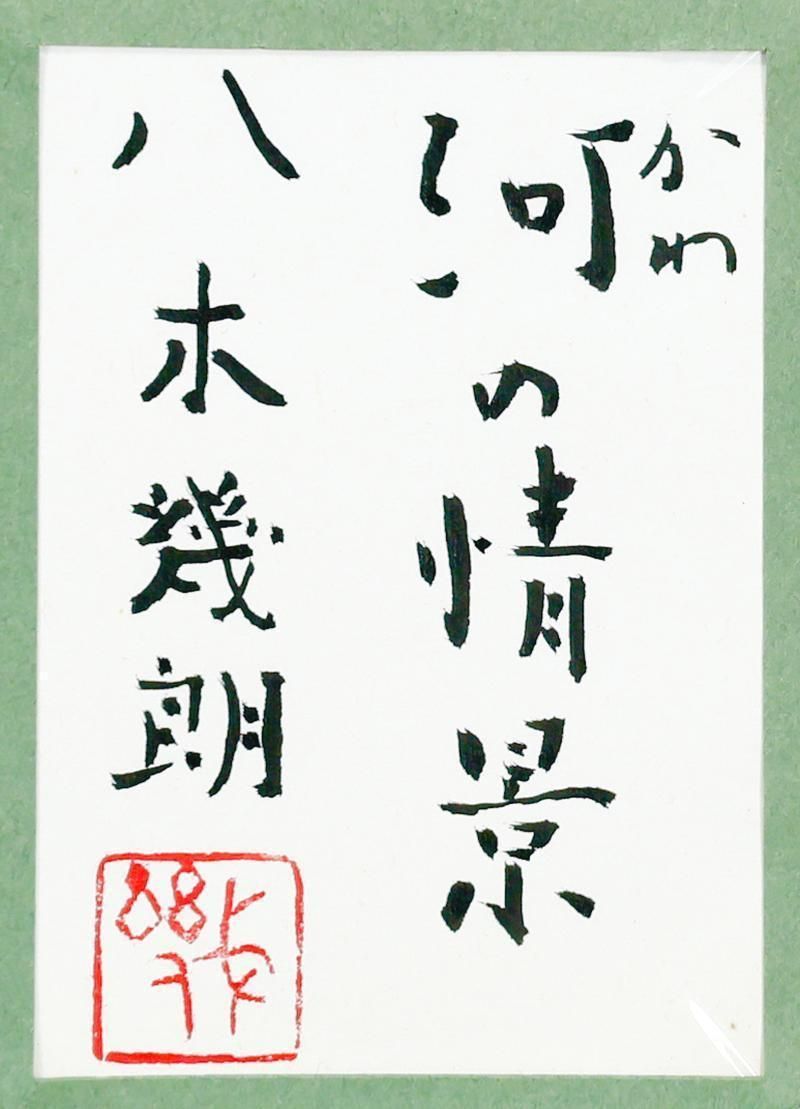 かわ
河の情景
八木幾朗
幾